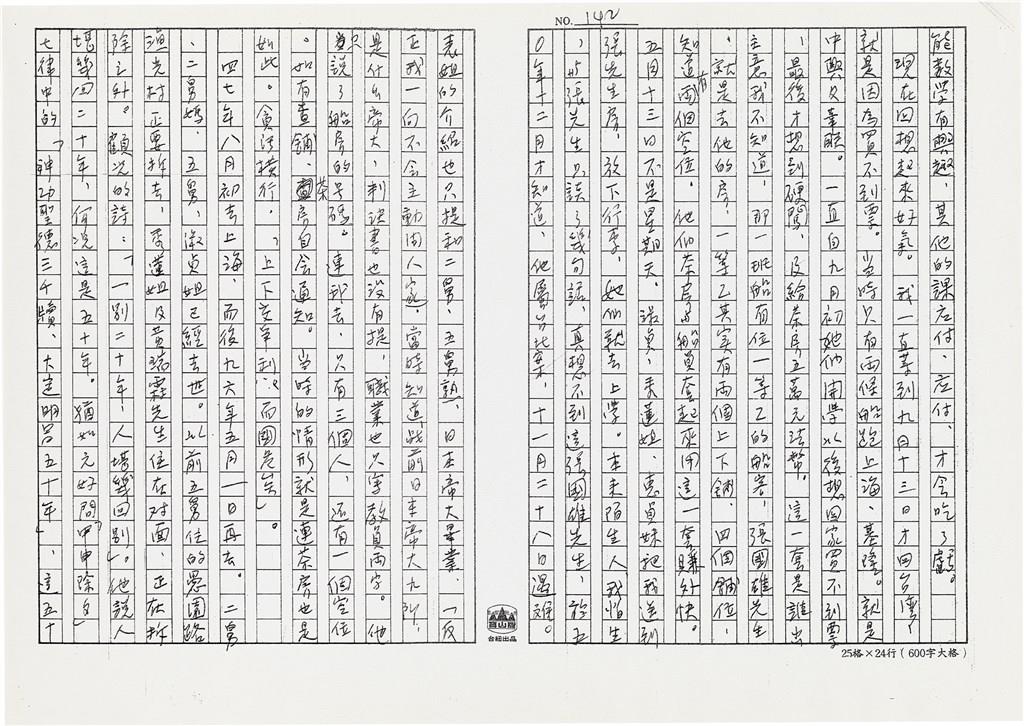 NO. 142
能教学有興趣，其他的課应付、应付，才会吃了虧。
現在回想起來好氣。我一直等到九月十三日才回台灣，
就是因為買不到票。当時只有兩條船跑上海、基隆。就是
中興及華聯。一直自九月初她们開学以後想回家買不到票
，最後才想到硬闖，及給茶房五萬元法幣。這一套是誰出
主意我不知道，那一班船有位一等乙的船客，張國雄先生
，就是去他的房，一等乙其实有兩個上下鋪，四個鋪位，
知道有兩個空位。他们茶房与船員套起來用這一套賺外快。
五日十三日不是星期天，淑貞、秀蓮姐、惠貞妹把我送到
張先生房，放下行李，她们就去上学。本来陌生人我怕生
，与張先生只談了幾句話，真想不到這張國雄先生，於五
０年十二月才知道，他屬台北案，十一月二十八日遇難。
表姐的介紹也只提和二舅、五舅熟，日本帝大畢業，「反
正我一向不会主動问人家，當時知道战前日本帝大九所，
是什么帝大，判决書也没有提，職業也只字教員兩字。他
只說了船房的号碼。連我去，只有三個人，还有一個空位
。如有查舖，茶房自会通知。当時的情形就是連茶房也是
如此。貪污橫行，「上下交爭利」而國危矣」。
四七年八月初去上海，而後九六年五月一日再去。二舅
、二舅媽、五舅、淑貞姐已經去世。以前五舅住的愚園路
漁光村正要拆去，秀蓮姐及黃瑞霖先生住在对面，正在拆
除之外。顧况的詩：「一別二十年，人堪幾回別」。他說人
堪幾回二十年，何况這是五十年。猶如元好問「甲申除夕」
七律中的「神功聖德三千牘，大定明昌五十年」，這五十
25格×24行（600字大格）
台紐出品